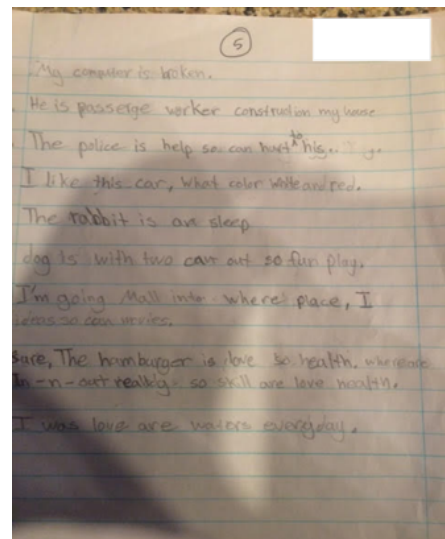 5
My computer is broken.
He is passerge worker construction my house
The police is help so can hurt to his..
I like this car, what color white and red.
The rabbit is an sleep
dog is with two cat out so fun play.
I'm going Mall into where place, I
ideas so can movies.
Sare, The hamburger is love so health. whereare
In-n-out really so skill are love health.
I was love are waters everyday.